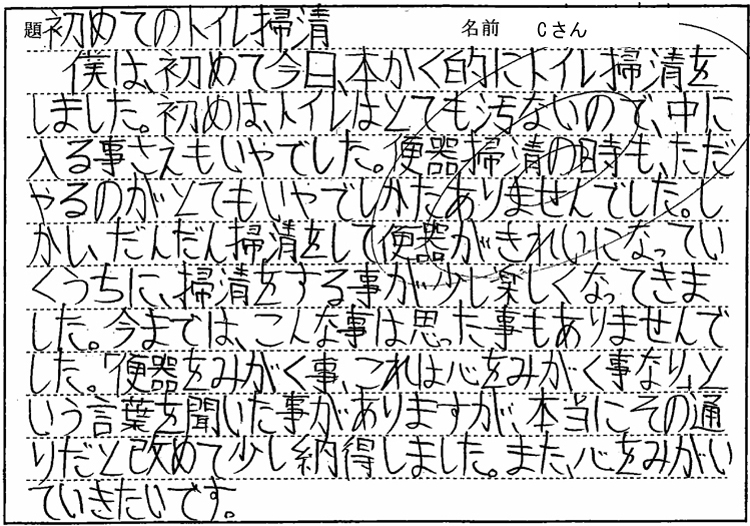 題 初めてのトイレ掃清 名前 Cさん
僕は、初めて今日、本かく的にトイレ掃清を
しました。初めは、トイレはとても汚ないので、中に
入る事さえもいやでした。便器掃清の時も、ただ
やるのがとてもいやでしかたありませんでした。し
かし、だんだん掃清をして便器がきれいになってい
くうちに、掃清をする事が少し楽しくなってきま
した。今までは、こんな事は思った事もありませんで
した。「便器をみがく事、これは心をみがく事なり」と
いう言葉を聞いた事がありますが、本当にその通
りだと改めて少し納得しました。また、心をみがい
ていきたいです。